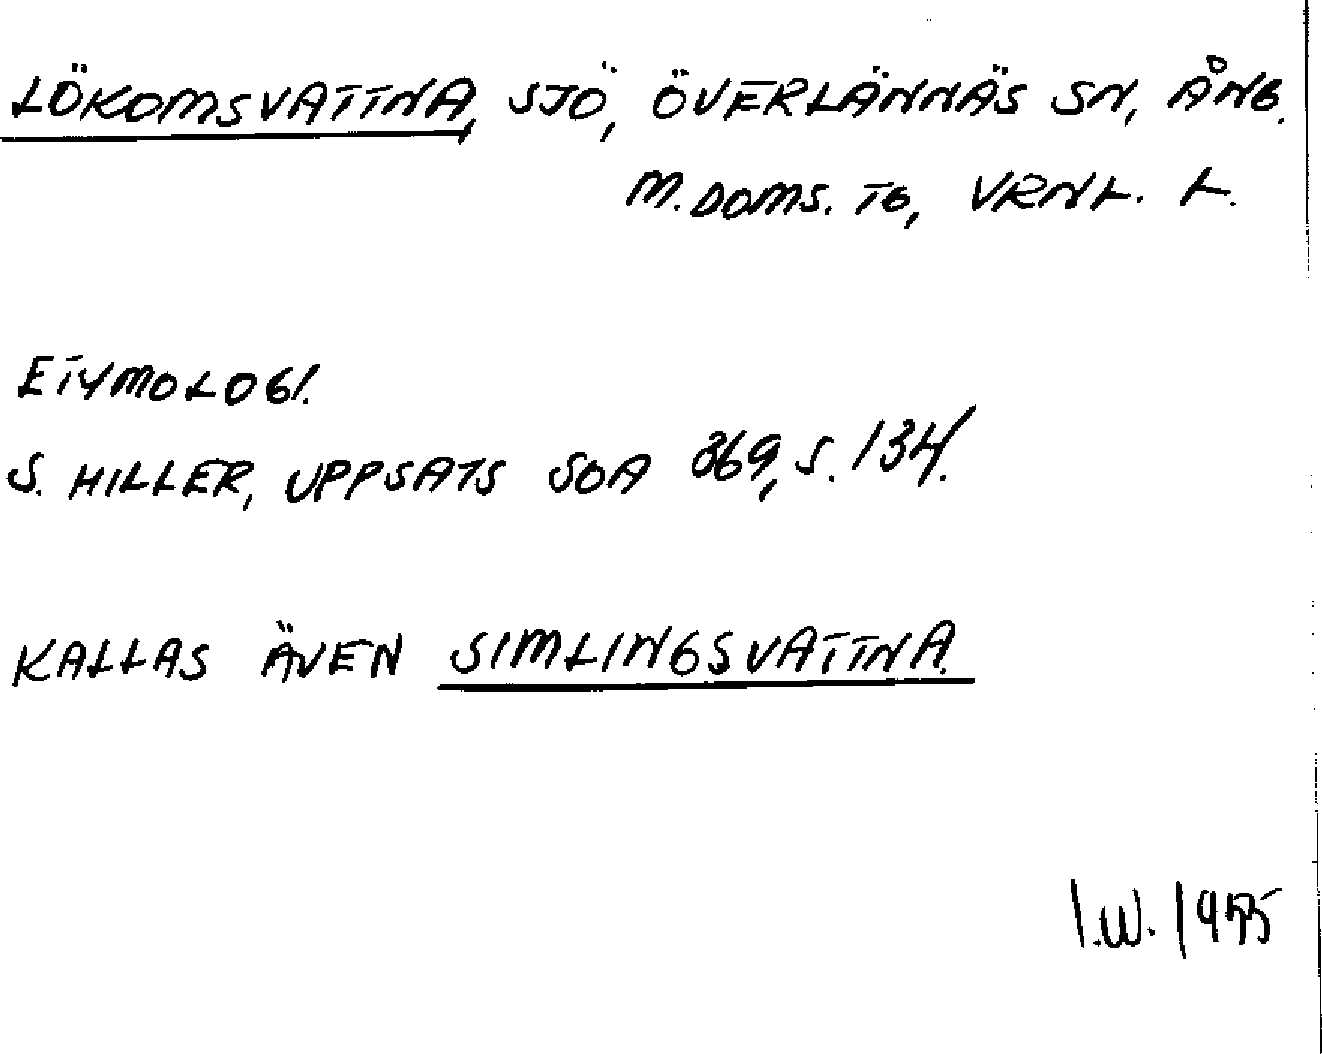 LÖKOMSVATTNA, SJÖ, ÖVERLÄNNÄS SN, ÅNG.
M. DOMS. TG, VRNL. L.
ETYMOLOGI.
S. HILLER, UPPSATS SOA 369, S. 134.
KALLAS ÄVEN SIMLINGSVATTNA.
I.W.